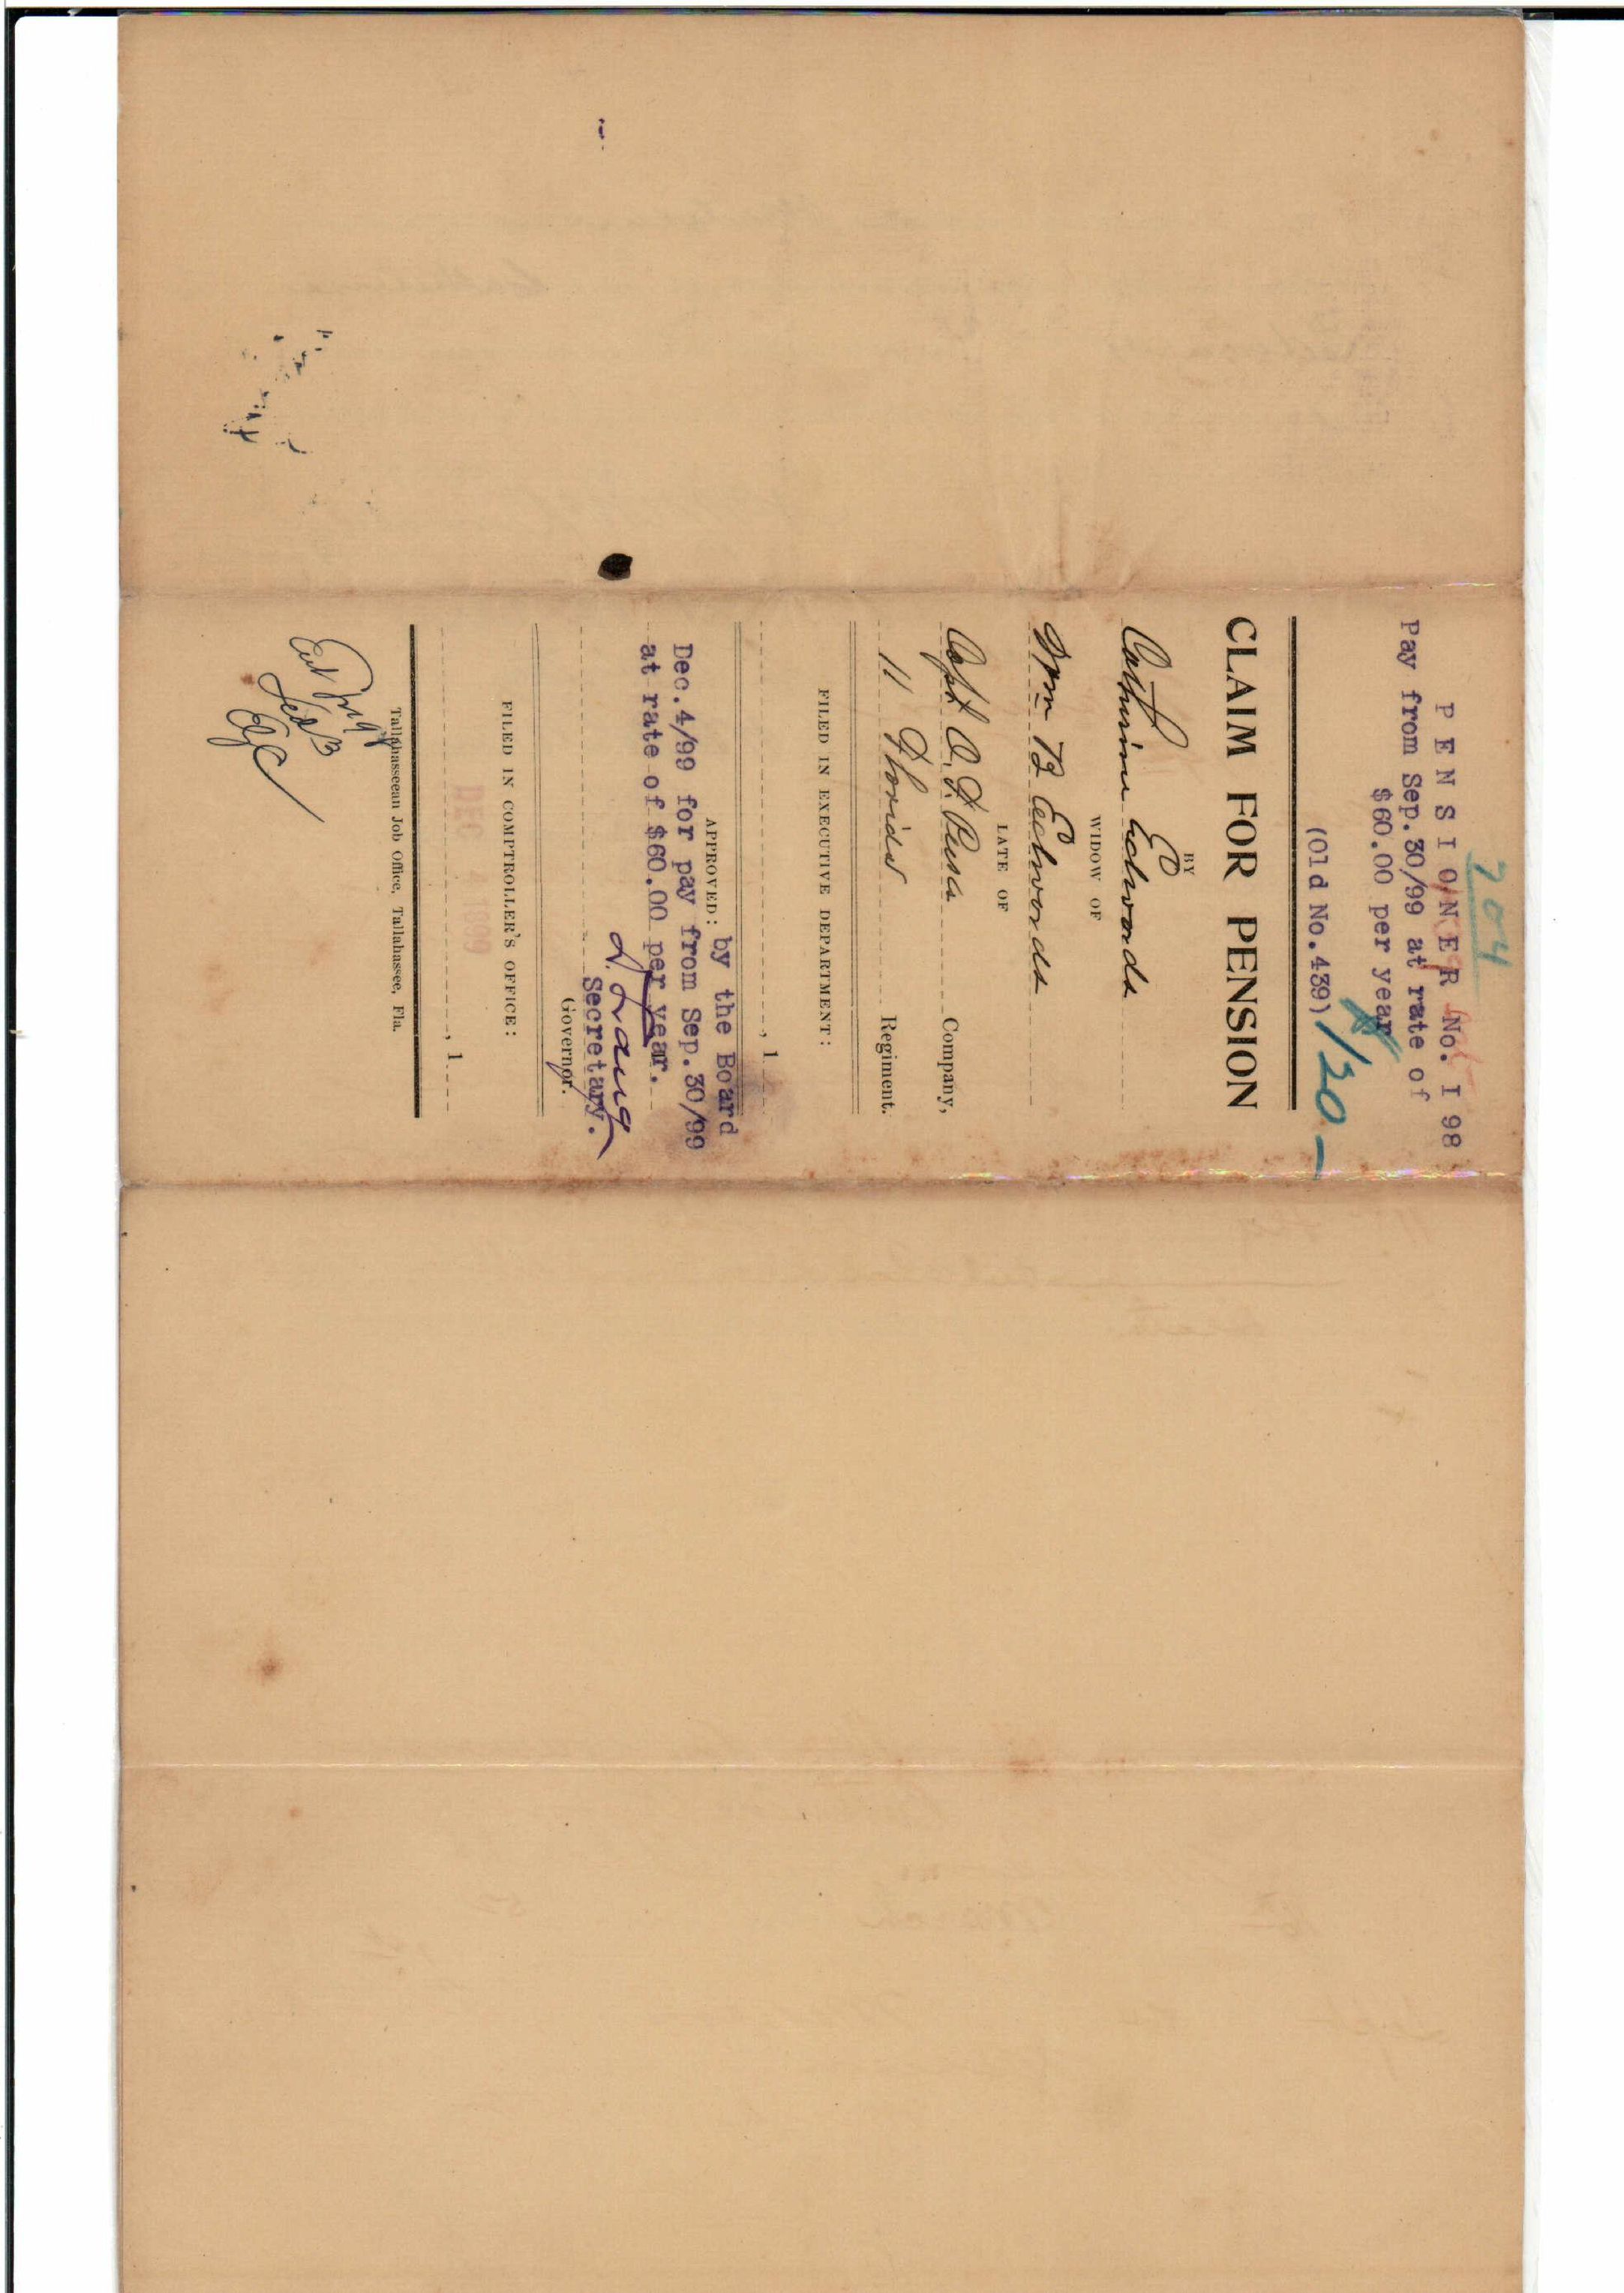 7 0 4
PENSIONER No. I 98
Pay from Sep.30/99 at rate of
$60.00 per year
(Old No.439) 120 —
CLAIM FOR PENSION
BY
Catherine Edwards
WIDOW OF
Wm B Edwards
LATE OF
Capt O. F. Company,
11 Florida Regiment.
FILED IN EXECUTIVE DEPARTMENT:
, 1
APPROVED: by the Board
Dec.4/99 for pay from Sep.30/99
at rate of $60.00 per year.
D. Lang
Secretary.
Governor.
FILED IN COMPTROLLER'S OFFICE:
DEC 4 1899
, 1
Tallahasseean Job Office, Tallahassee, Fla.